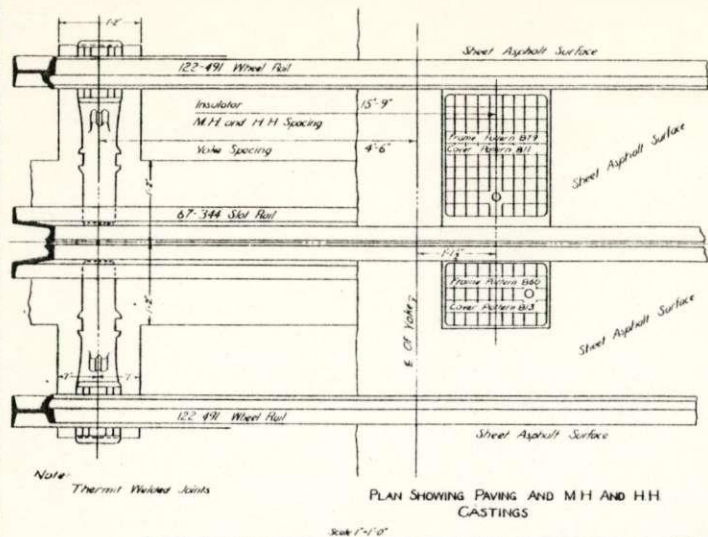 1'-2"
Sheet Asphalt Surface
122-491 Wheel Rail
Insulator 15'-9"
M.H. and H.H. Spacing
Yoke Spacing 4'-6"
Frame Pattern B79
Cover Pattern B11
Sheet Asphalt Surface
1'-2"
67-344 Slot Rail
Frame Pattern B80
Cover Pattern B13
1'-2"
℄ Of Yoke
Sheet Asphalt Surface
7" 7"
122-491 Wheel Rail
Sheet Asphalt Surface
Note:
Thermit Welded Joints
PLAN SHOWING PAVING AND M H AND H.H.
CASTINGS
Scale 1"=1'-0"